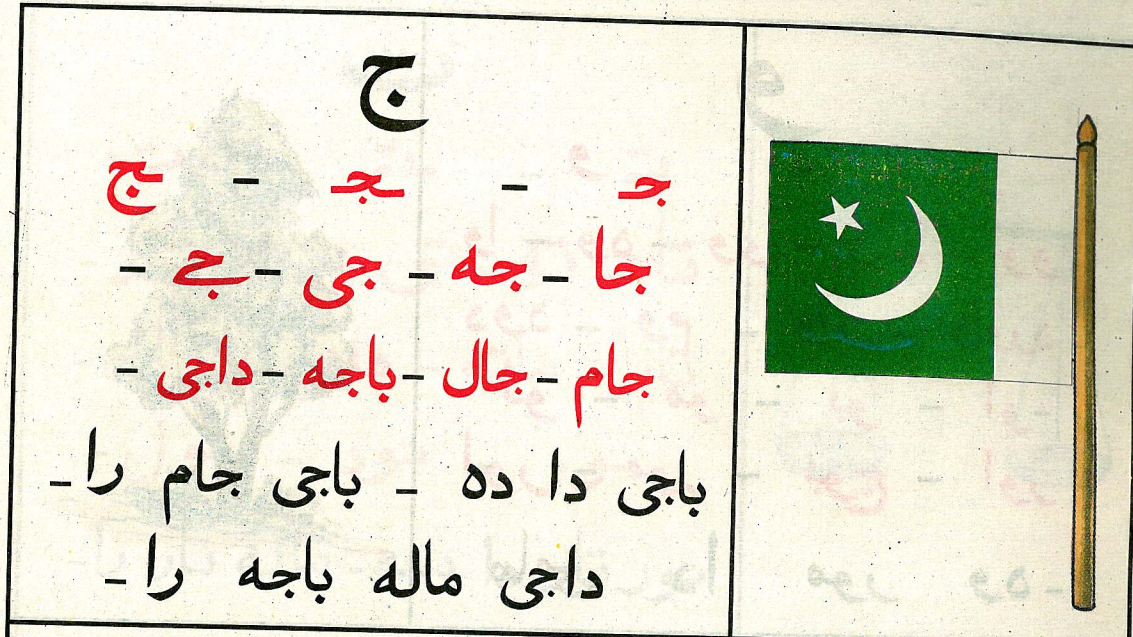 ج
جـ - ـجـ - ـج
جا - جه - جی - جے -
جام - جال - باجه - داجی -
باجی دا ده - باجی جام را -
داجی ماله باجه را -